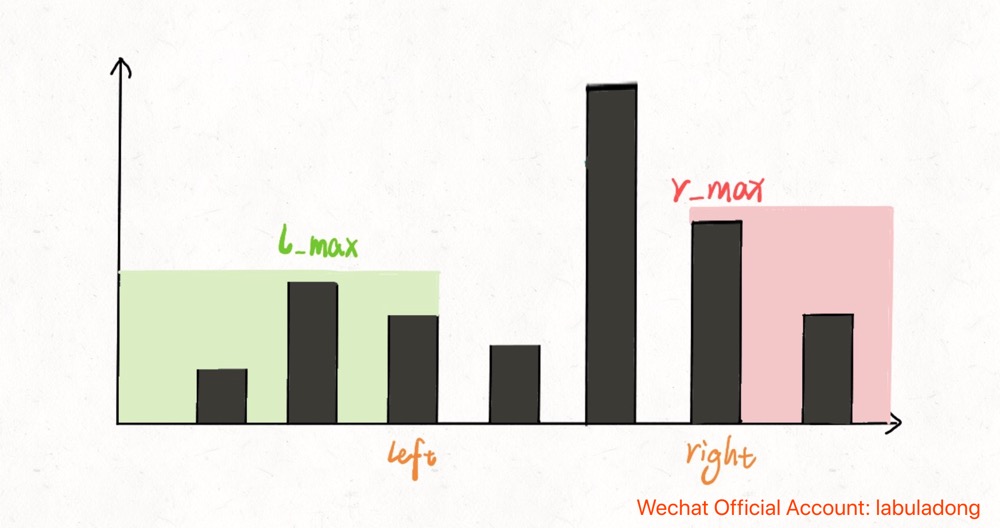 r_max
l_max
left
right
Wechat Official Account: labuladong